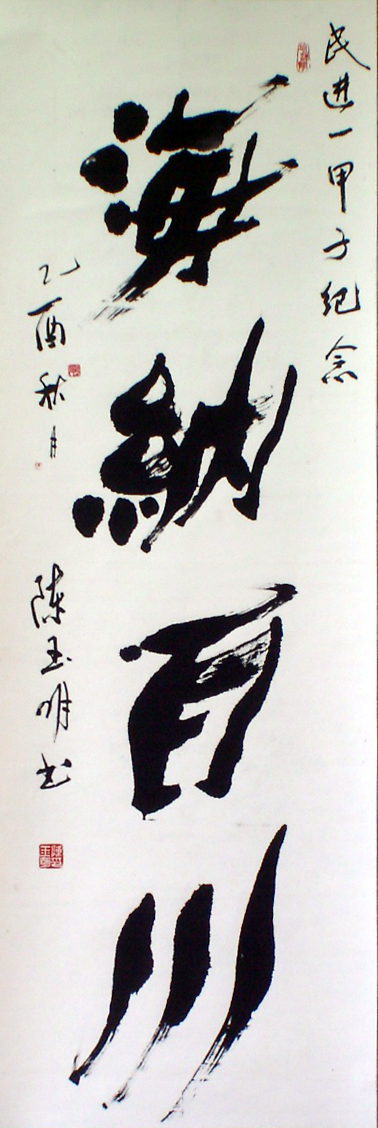 民进一甲子纪念
海纳百川
乙酉秋月
陈玉明书